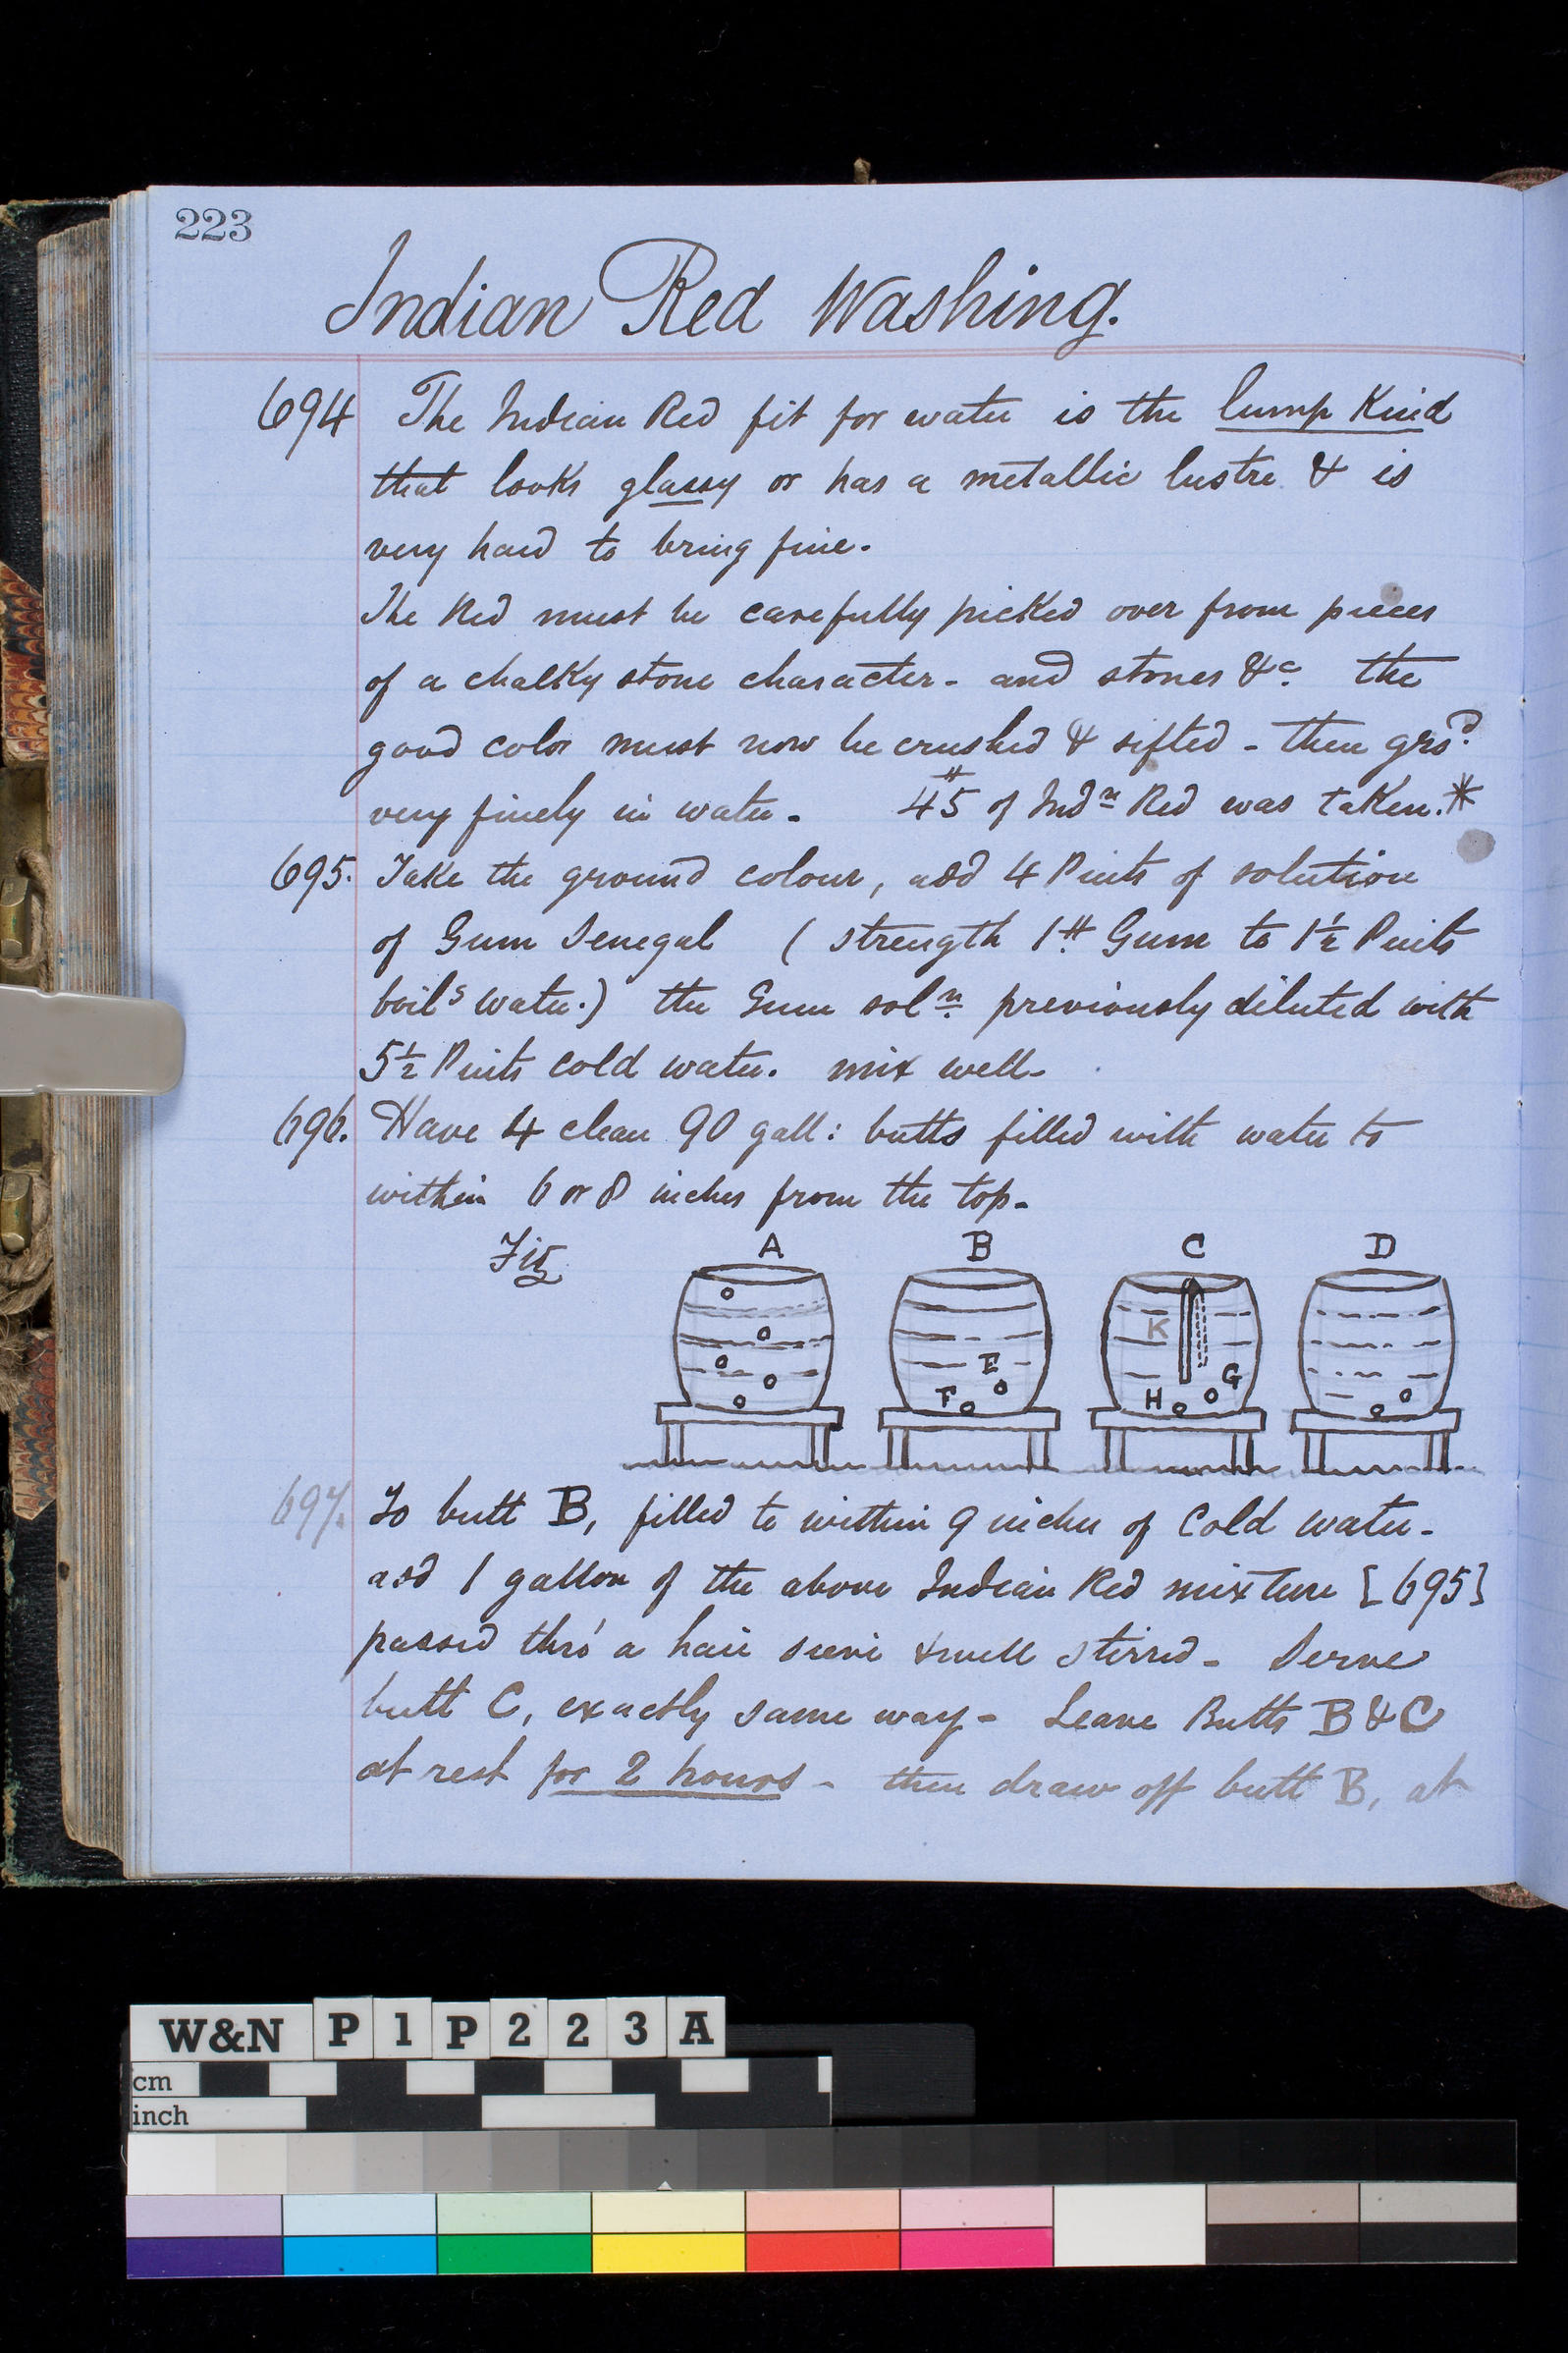 223
Indian Red Washing.
694 The Indian Red fit for water is the lump Kind
that looks glassy or has a metallic lustre & is
very hard to bring fine.
The Red must be carefully picked over from pieces
of a chalky stone character - and stones &c. the
good color must now be crushed & sifted - then gr
very finely in water. 45 # of Indn Red was taken.*
695. Take the ground colour, add 4 Pints of solution
of Gum Senegal ( strength 1 # Gum to 1½ Pints
boilg water.) the Gum soln. previously diluted with
5½ Pints cold water. mix well -
696. Have 4 clean 90 gall: butts filled with water to
within 6 or 8 inches from the top -
Fig A B C D
K
E
G
F H
697. To butt B, filled to within 9 inches of Cold water -
add 1 gallon of the above Indian Red mixture [695]
passed thro' a hair sieve & well stirred - Serve
butt C, exactly same way - Leave Butts B & C
at rest for 2 hours - then draw off butt B, at
W&N P1P223A
cm
inch